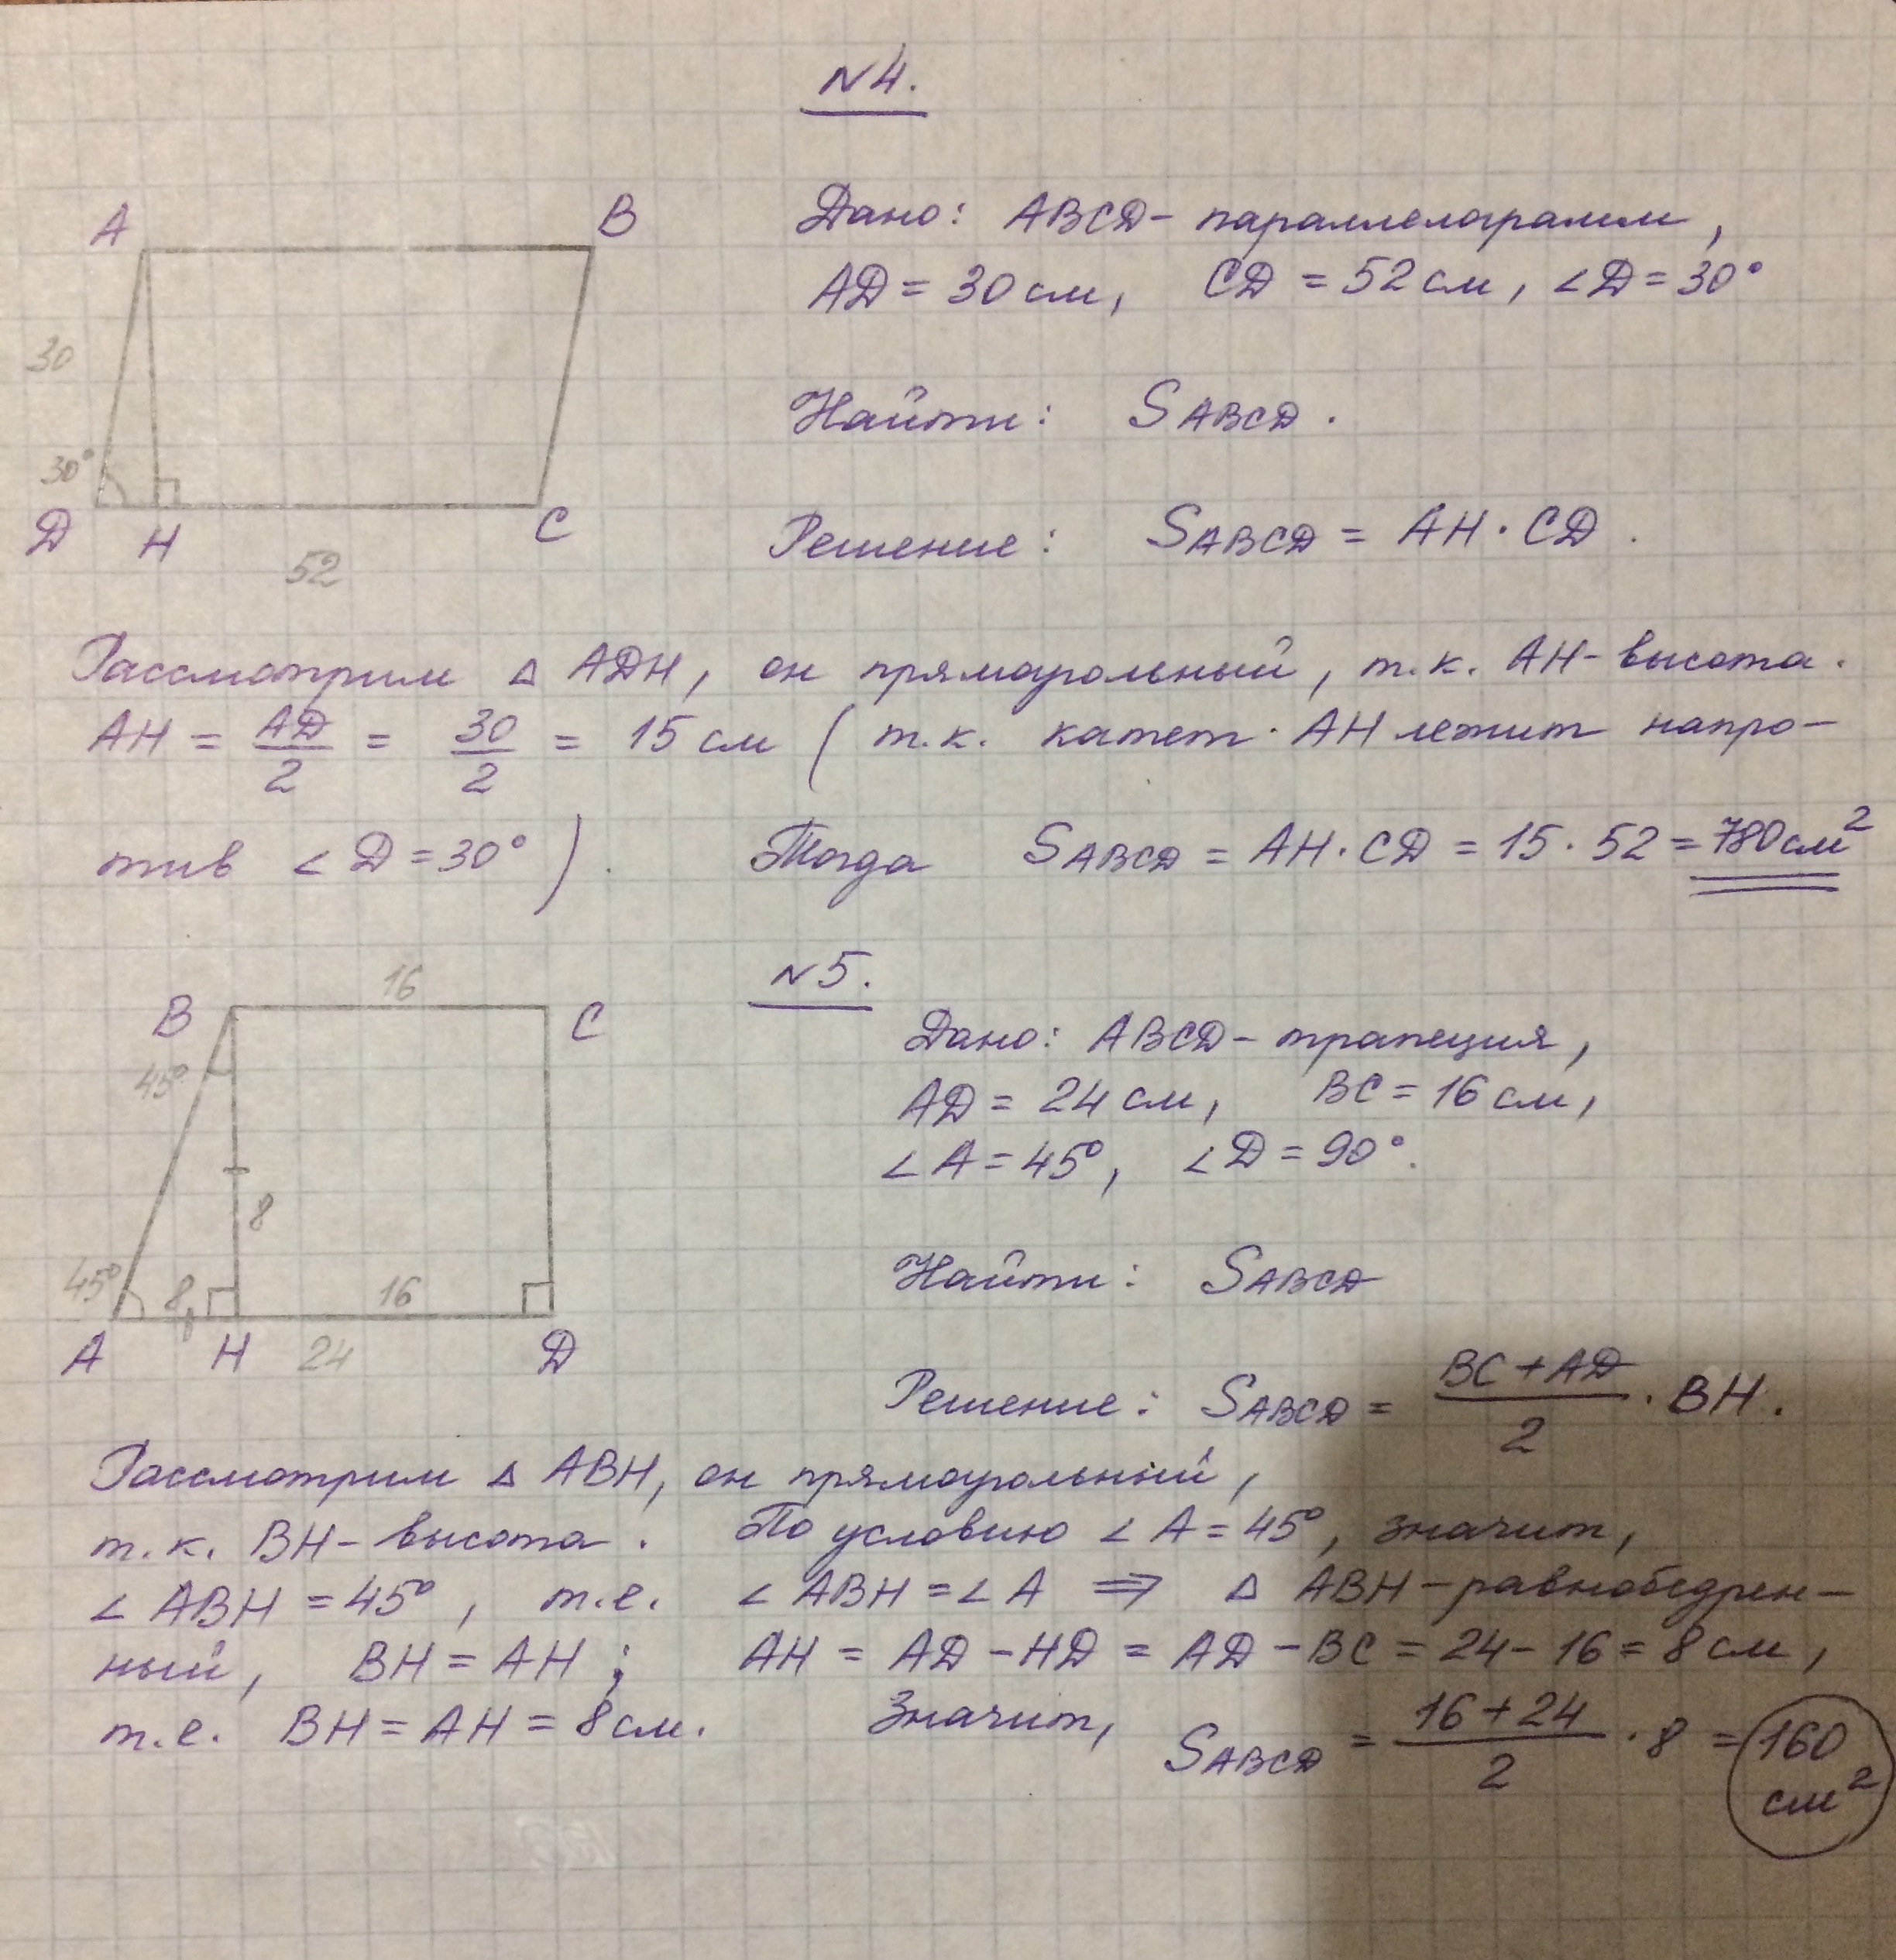 N4.
A B
Дано: ABCD - параллелограмм,
AD = 30 см, CD = 52 см, ∠D = 30°
30
Найти: S ABCD.
30°
D H C
52
Решение: S ABCD = AH · CD.
Рассмотрим △ ADH, он прямоугольный, т.к. AH - высота.
AH = AD/2 = 30/2 = 15 см (т.к. катет AH лежит напро-
тив ∠D = 30°). Тогда S ABCD = AH · CD = 15 · 52 = 780 см²
N5.
16
B C
45°
Дано: ABCD - трапеция,
AD = 24 см, BC = 16 см,
∠A = 45°, ∠D = 90°.
8
Найти: S ABCD
45° 8 16
A H 24 D
Решение: S ABCD = (BC + AD)/2 · BH.
Рассмотрим △ ABH, он прямоугольный,
т.к. BH - высота. По условию ∠A = 45°, значит,
∠ABH = 45°, т.е. ∠ABH = ∠A ⇒ △ ABH - равнобедрен-
ный, BH = AH; AH = AD - HD = AD - BC = 24 - 16 = 8 см,
т.е. BH = AH = 8 см. Значит, S ABCD = (16 + 24)/2 · 8 = 160 см²